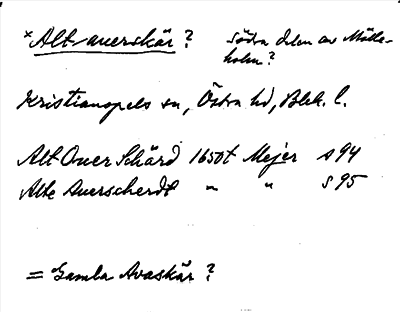 *Alt-auerskär? Södra delen av Mölle-
holm?
Kristianopels sn, Östra hd, Blek. l.
Alt Over Schärd 1650t Mejer s 94
Alte Auerscherdt " " s 95
= Gamla Avaskär?